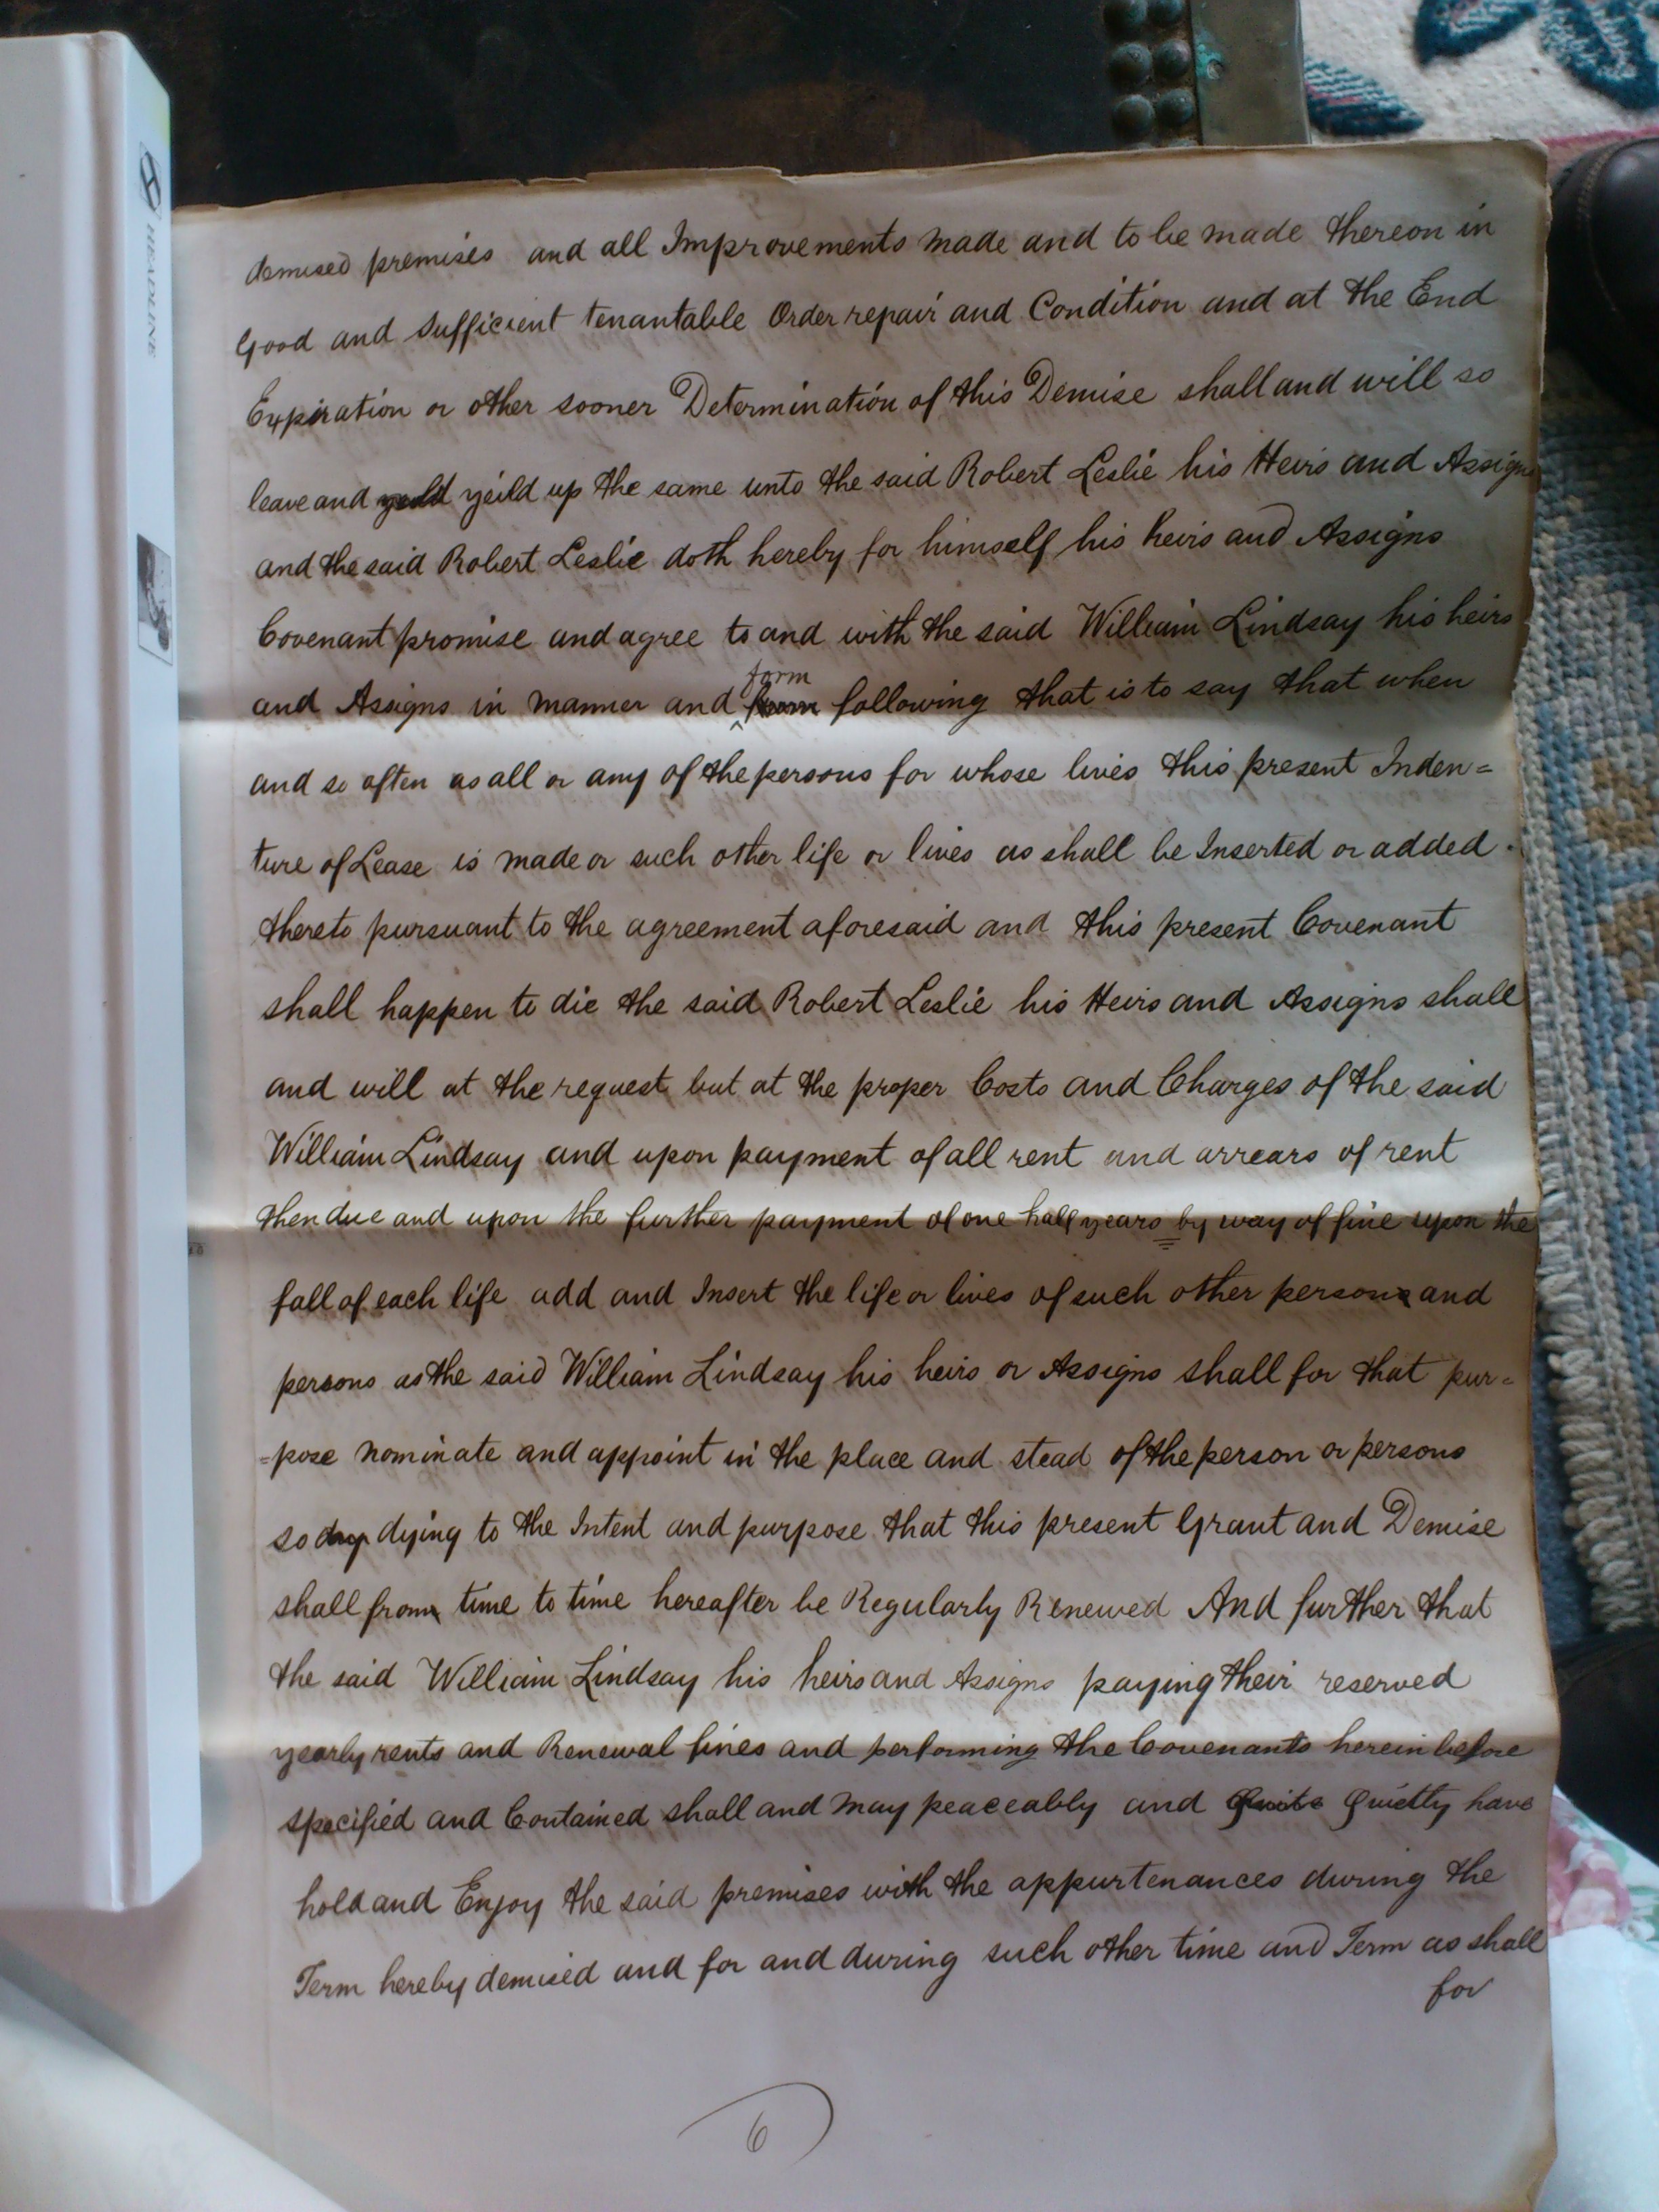 HEADLINE
demised premises and all Improvements made and to be made thereon in
Good and sufficient tenantable Order repair and Condition and at the End
Expiration or other sooner Determination of this Demise shall and will so
leave and yeild up the same unto the said Robert Leslie his Heirs and Assigns
and the said Robert Leslie doth hereby for himself his heirs and Assigns
Covenant promise and agree to and with the said William Lindsay his heirs
form
and Assigns in manner and following that is to say that when
and so often as all or any of the persons for whose lives this present Inden=
ture of Lease is made or such other life or lives as shall be Inserted or added
thereto pursuant to the agreement aforesaid and this present Covenant
shall happen to die the said Robert Leslie his Heirs and Assigns shall
and will at the request but at the proper Costs and Charges of the said
William Lindsay and upon payment of all rent and arrears of rent
then due and upon the further payment of one half years by way of fine upon the
fall of each life add and Insert the life or lives of such other person and
persons as the said William Lindsay his heirs or Assigns shall for that pur=
=pose nominate and appoint in the place and stead of the person or persons
so dying to the Intent and purpose that this present Grant and Demise
shall from time to time hereafter be Regularly Renewed And further that
the said William Lindsay his heirs and Assigns paying their reserved
yearly rents and Renewal fines and performing the Covenants herein before
specified and Contained shall and may peaceably and Quite Quietly have
hold and Enjoy the said premises with the appurtenances during the
Term hereby demised and for and during such other time and Term as shall
for
6